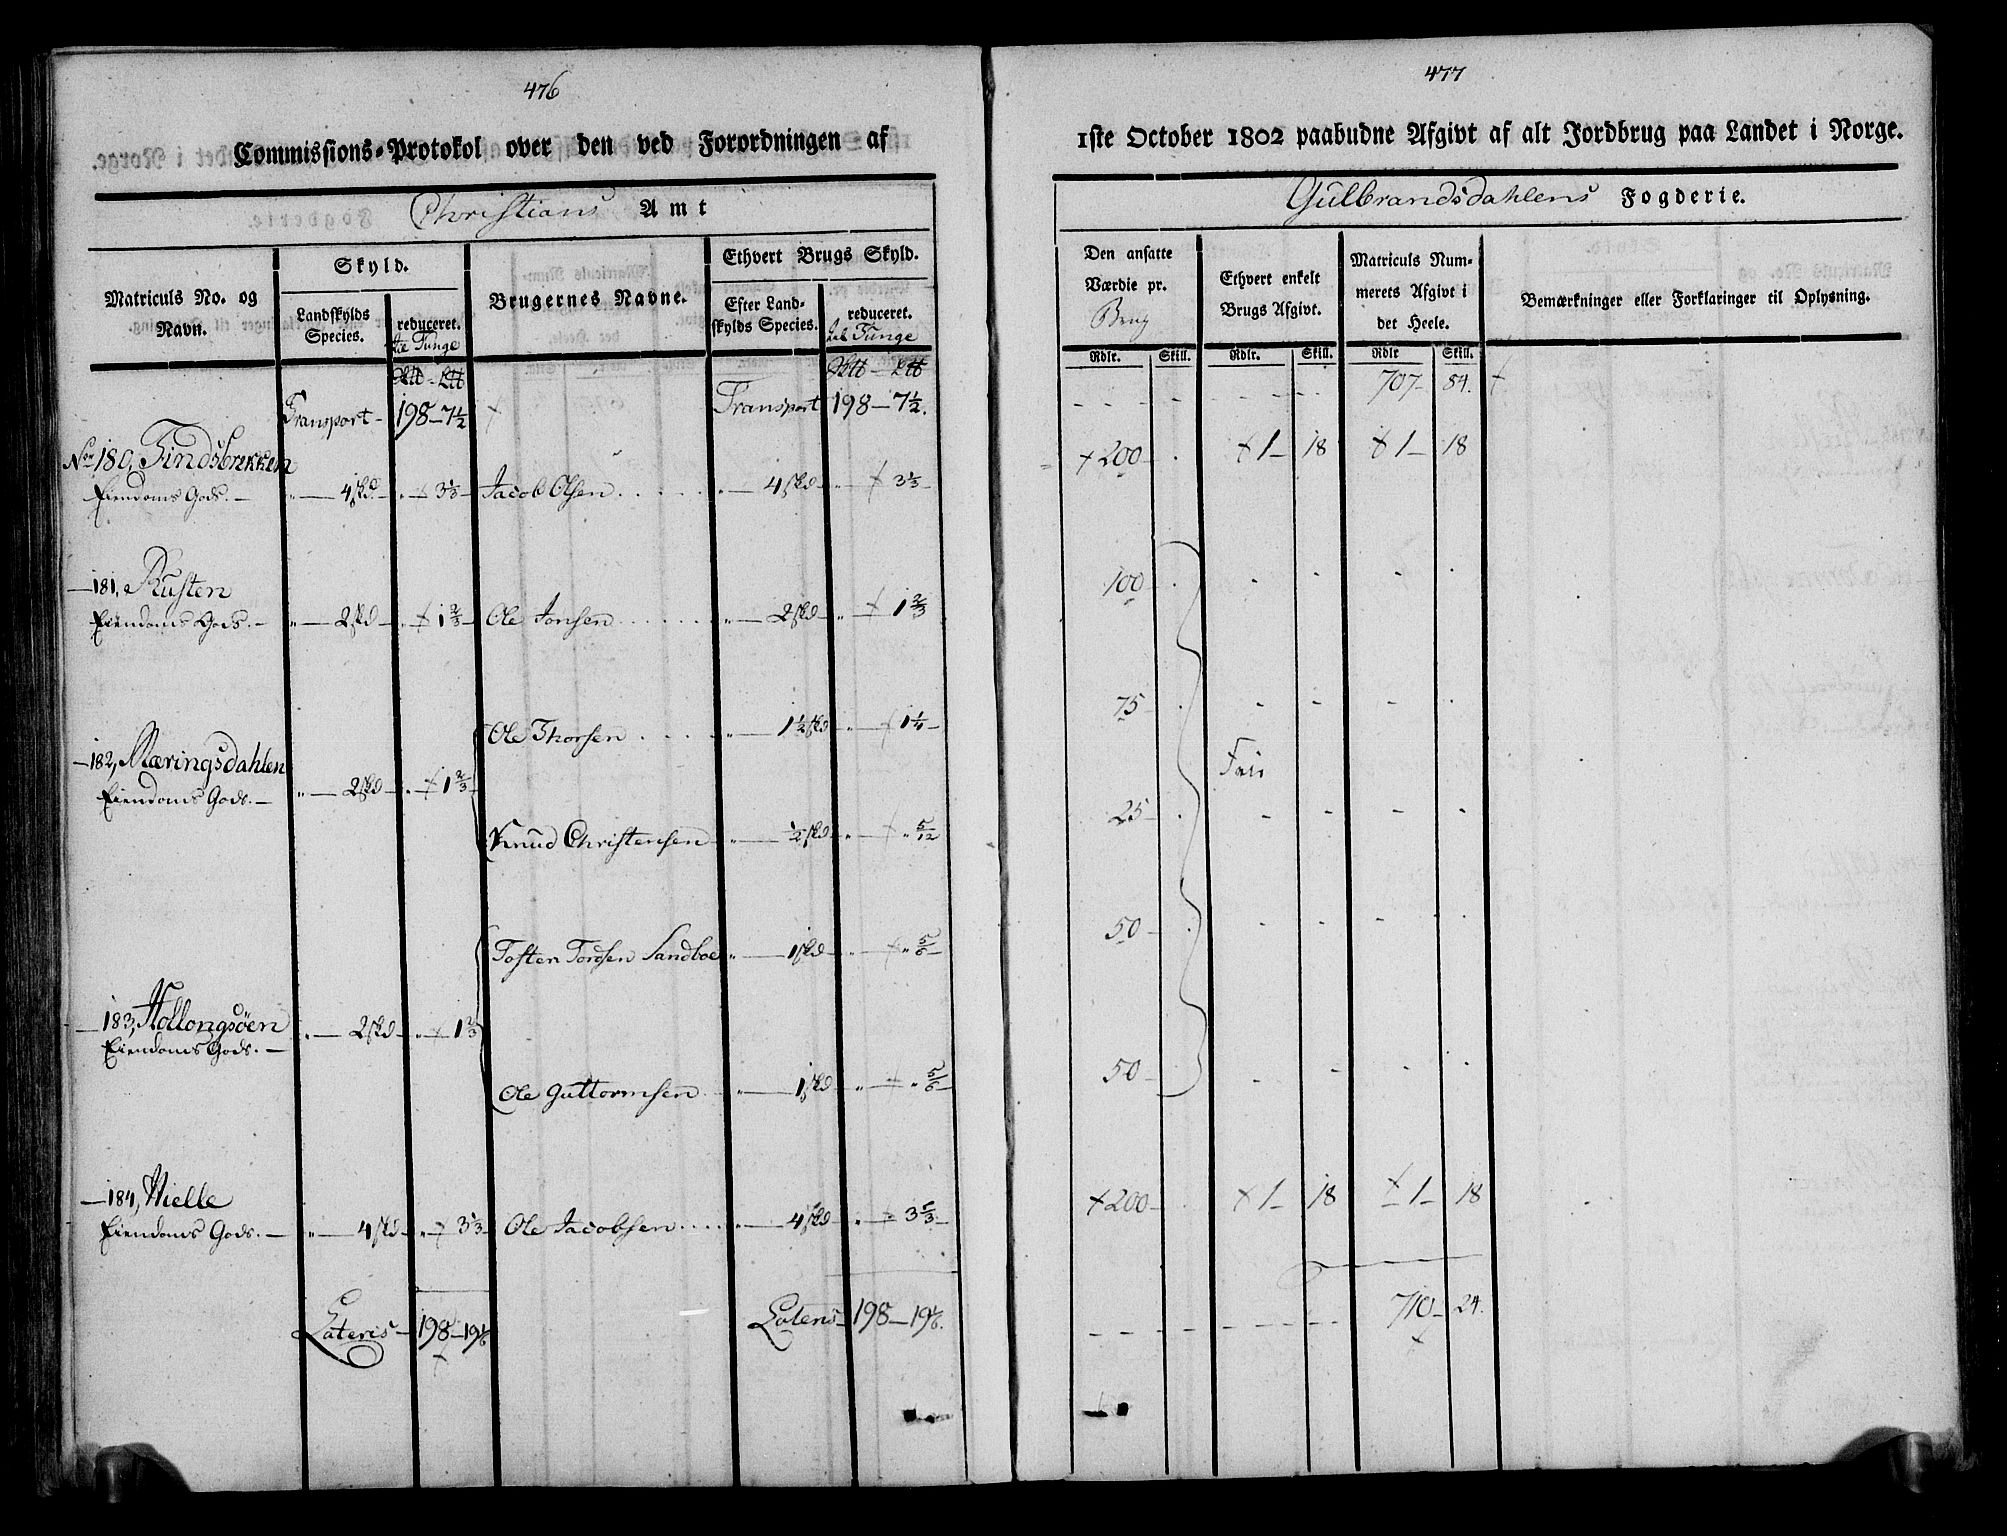 476
Commissions-Protokol over den ved Forordningen af
Christians Amt
Matriculs No. og Navn.
Skyld.
Landskylds Species.
reduceret. til Tunge
Brugernes Navne.
Ethvert Brugs Skyld.
Efter Landskylds Species.
reduceret. til Tunge
Transport - 198 - 7½ Transport 198 - 7½.
No 180, Findsbrekken
Eiendoms Gods. - " - 4 skd. - " - 3⅓ - Jacob Olsen . . . . . " - 4 skd - " - 3⅓ -
- 181, Rusten
Eiendoms Gods. - " - 2 skd - " - 1⅔ - Ole Jonsen . . . . . . " - 2 skd - " - 1⅔
Ole Thorsen . . . . " - 1½ skd " - 1¼ -
- 182, Næringsdahlen
Eiendoms Gods. - " - 2 skd - " - 1⅔
Knud Christensen - " - ½ skd - " - " 5/12
Tosten Tordsen Sandboe " - 1 skd - " - " 5/6 -
- 183, Hollongsöen
Eiendoms Gods. - " - 2 skd - " - 1⅔
Ole Guttormsen - " - 1 skd - " - " 5/6
- 184, Hielle
Eiendoms Gods. - " - 4 skd - " - 3⅓ - Ole Jacobsen . . . . " - 4 skd - " - 3⅓ -
Lateris - 198 - 19⅙ Lateris - 198 - 19⅙.
477
1ste October 1802 paabudne Afgivt af alt Jordbrug paa Landet i Norge.
Gulbrandsdahlens Fogderie.
Den ansatte Værdie pr. Brug
Ethvert enkelt Brugs Afgivt.
Matriculs Nummerets Afgivt i det Heele.
Bemærkninger eller Forklaringer til Oplysning.
Rdlr. Skill. Rdlr. Skill. Rdlr Skill.
707 - 84.
200 - 1 - 18 1 - 18
100
75 -
Fri
25 -
50 -
50 -
200 - 1 - 18 1 - 18
710 - 24.